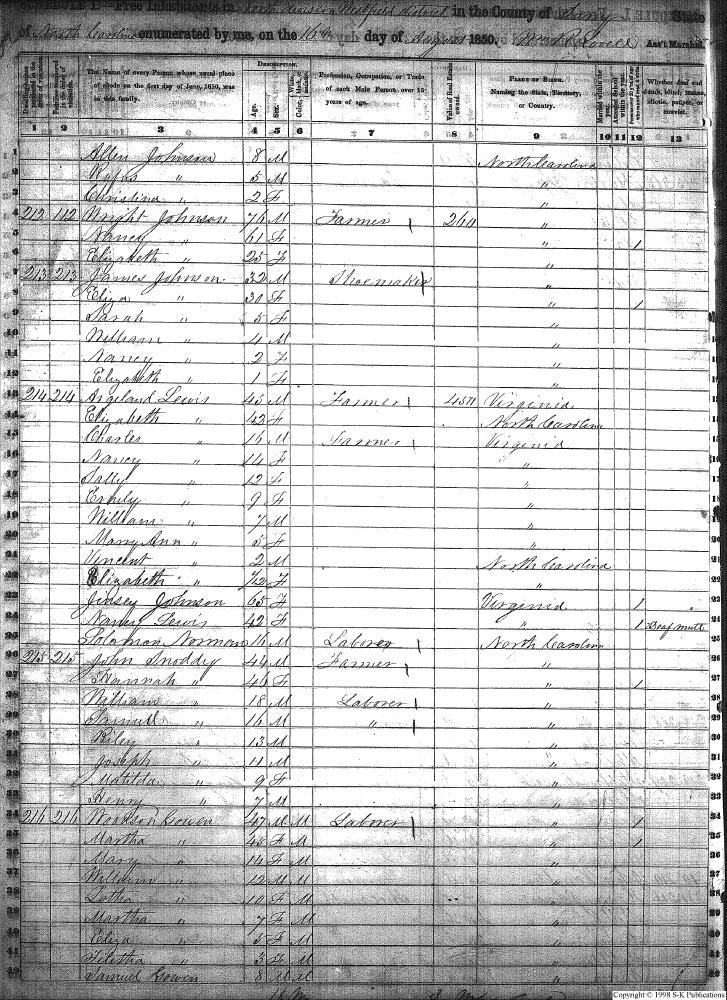 SCHEDULE I.—Free Inhabitants in North division Westfield district in the County of Surry State
of North Carolina enumerated by me, on the 16th day of August 1850. Ass't Marshal
The Name of every Person whose usual place of abode on the first day of June, 1850, was in this family.
DESCRIPTION.
Age.
Sex.
Profession, Occupation, or Trade of each Male Person over 15 years of age.
Value of Real Estate owned.
PLACE OF BIRTH. Naming the State, Territory, or Country.
Whether deaf and dumb, blind, insane, idiotic, pauper, or convict.
1 2 3 4 5 6 7 8 9 10 11 12 13
1 Allen Johnson 8 M North Carolina
2 Rufus " 5 M "
3 Christina " 2 F "
4 212 112 Wright Johnson 76 M Farmer 260 "
5 Nancy " 61 F " 1
6 Elizabeth " 25 F "
7 213 213 James Johnson 32 M Shoemaker "
8 Eliza " 30 F " 1
9 Sarah " 5 F "
10 William " 4 M "
11 Nancy " 2 F "
12 Elizabeth " 1 F "
13 214 214 Lewis 45 M Farmer 450 Virginia
14 Elizabeth " 43 F North Carolina
15 Charles " 16 M Farmer Virginia
16 Nancy " 14 F "
17 Sally " 12 F "
18 Emily " 9 F "
19 William " 7 M "
20 Mary Ann " 5 F "
21 Vincent " 2 M North Carolina
22 Elizabeth " F "
23 Johnson 65 F Virginia 1
24 Nancy Lewis 42 F " 1 Deaf mute
25 Solomon Norman 16 M Laborer North Carolina
26 215 215 John Snoddy 44 M Farmer "
27 Hannah " 46 F " 1
28 William " 18 M Laborer "
29 Samuel " 16 M " "
30 Riley " 13 M "
31 Joseph " 11 M "
32 Matilda " 9 F "
33 Henry " 7 M "
34 216 216 Woodson Gowen 47 M M Laborer " 1
35 Martha " F M " 1
36 Mary " 14 F M "
37 William " 12 M M "
38 " 10 F M "
39 Martha " 7 F M "
40 Eliza " 5 F M "
41 " 3 F M "
42 Samuel Gowen 8 M M "
Copyright © 1998 S-K Publications